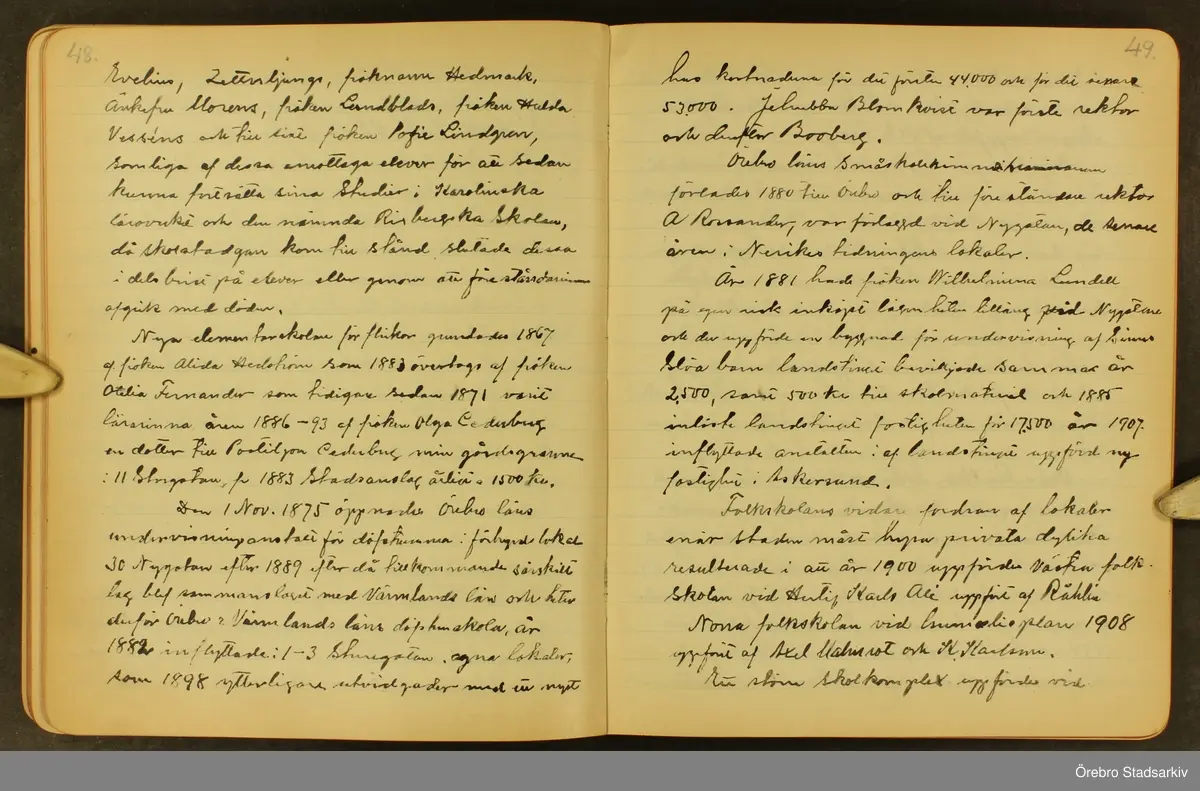 48.
Evelius, Zetterljungs, fröknarna Hedmark,
Änkefru Morens, fröken Lundblads, fröken Hulda
Vesséns och till sist fröken Sofie Lindgren,
somliga af dessa emottaga elever för att sedan
kunna fortsätta sina Studier i Karolinska
läroverket och den nämnda Risbergska Skolan,
då skolstadgan kom till stånd slutade dessa
i dels brist på elever eller genom att föreståndarinnan
afgik med döden.
Nya elementarskolan för flickor grundades 1867
af fröken Alida Hedström som 1883 övertogs af fröken
Otilia Fernander som tidigare sedan 1871 varit
lärarinna åren 1886-93 af fröken Olga Cederberg
en dotter till Postiljon Cederberg min gårdsgranne
i 11 Storgatan, fr 1883 Stadsanslag årligen 1500 kr.
Den 1 Nov. 1875 öppnades Örebro läns
undervisningsanstalt för döfstumma i förhyrd lokal
30 Nygatan efter 1889 efter då tillkommande särskilt
lag blef sammanslaget med Värmlands län och heter
derför Örebro & Värmlands läns döfstumskola, år
1882 inflyttade i 1-3 Sturegatan. egna lokaler,
som 1898 ytterligare utvidgades med ett nytt
49.
hus kostnaderna för det förste 44,000 och för det senare
53,000. Jehubba Blomkvist var förste rektor
och derefter Booberg.
Örebro läns Småskolelärarinneseminarium
förlades 1880 till Örebro och till föreståndare rektor
A Rossander, var förlagd vid Nygatan, de senare
åren i Nerikes tidningens lokaler.
År 1881 hade fröken Wilhelmina Lundell
på egen risk inköpt lägenheten Lilläng vid Nygatan
och der uppförde en byggnad för undervisning af Sinnes
Slöa barn landstinget beviljade samma år
2,500, samt 500 kr till skolmateriel och 1885
inlöste landstinget fastigheten för 17,500 år 1907.
inflyttade anstalten i af landstinget uppförd ny
fastighet i Askersund.
Folkskolans vidare fordran af lokaler
enär staden måst hyra privata dylika
resulterade i att år 1900 uppfördes Västra folk-
skolan vid Hertig Karls Allé uppfört af Råhlin
Norra folkskolan vid plan 1908
uppfört af Axel Malmrot och K. Karlsson.
Ett större Skolkomplex uppfördes vid
Örebro Stadsarkiv